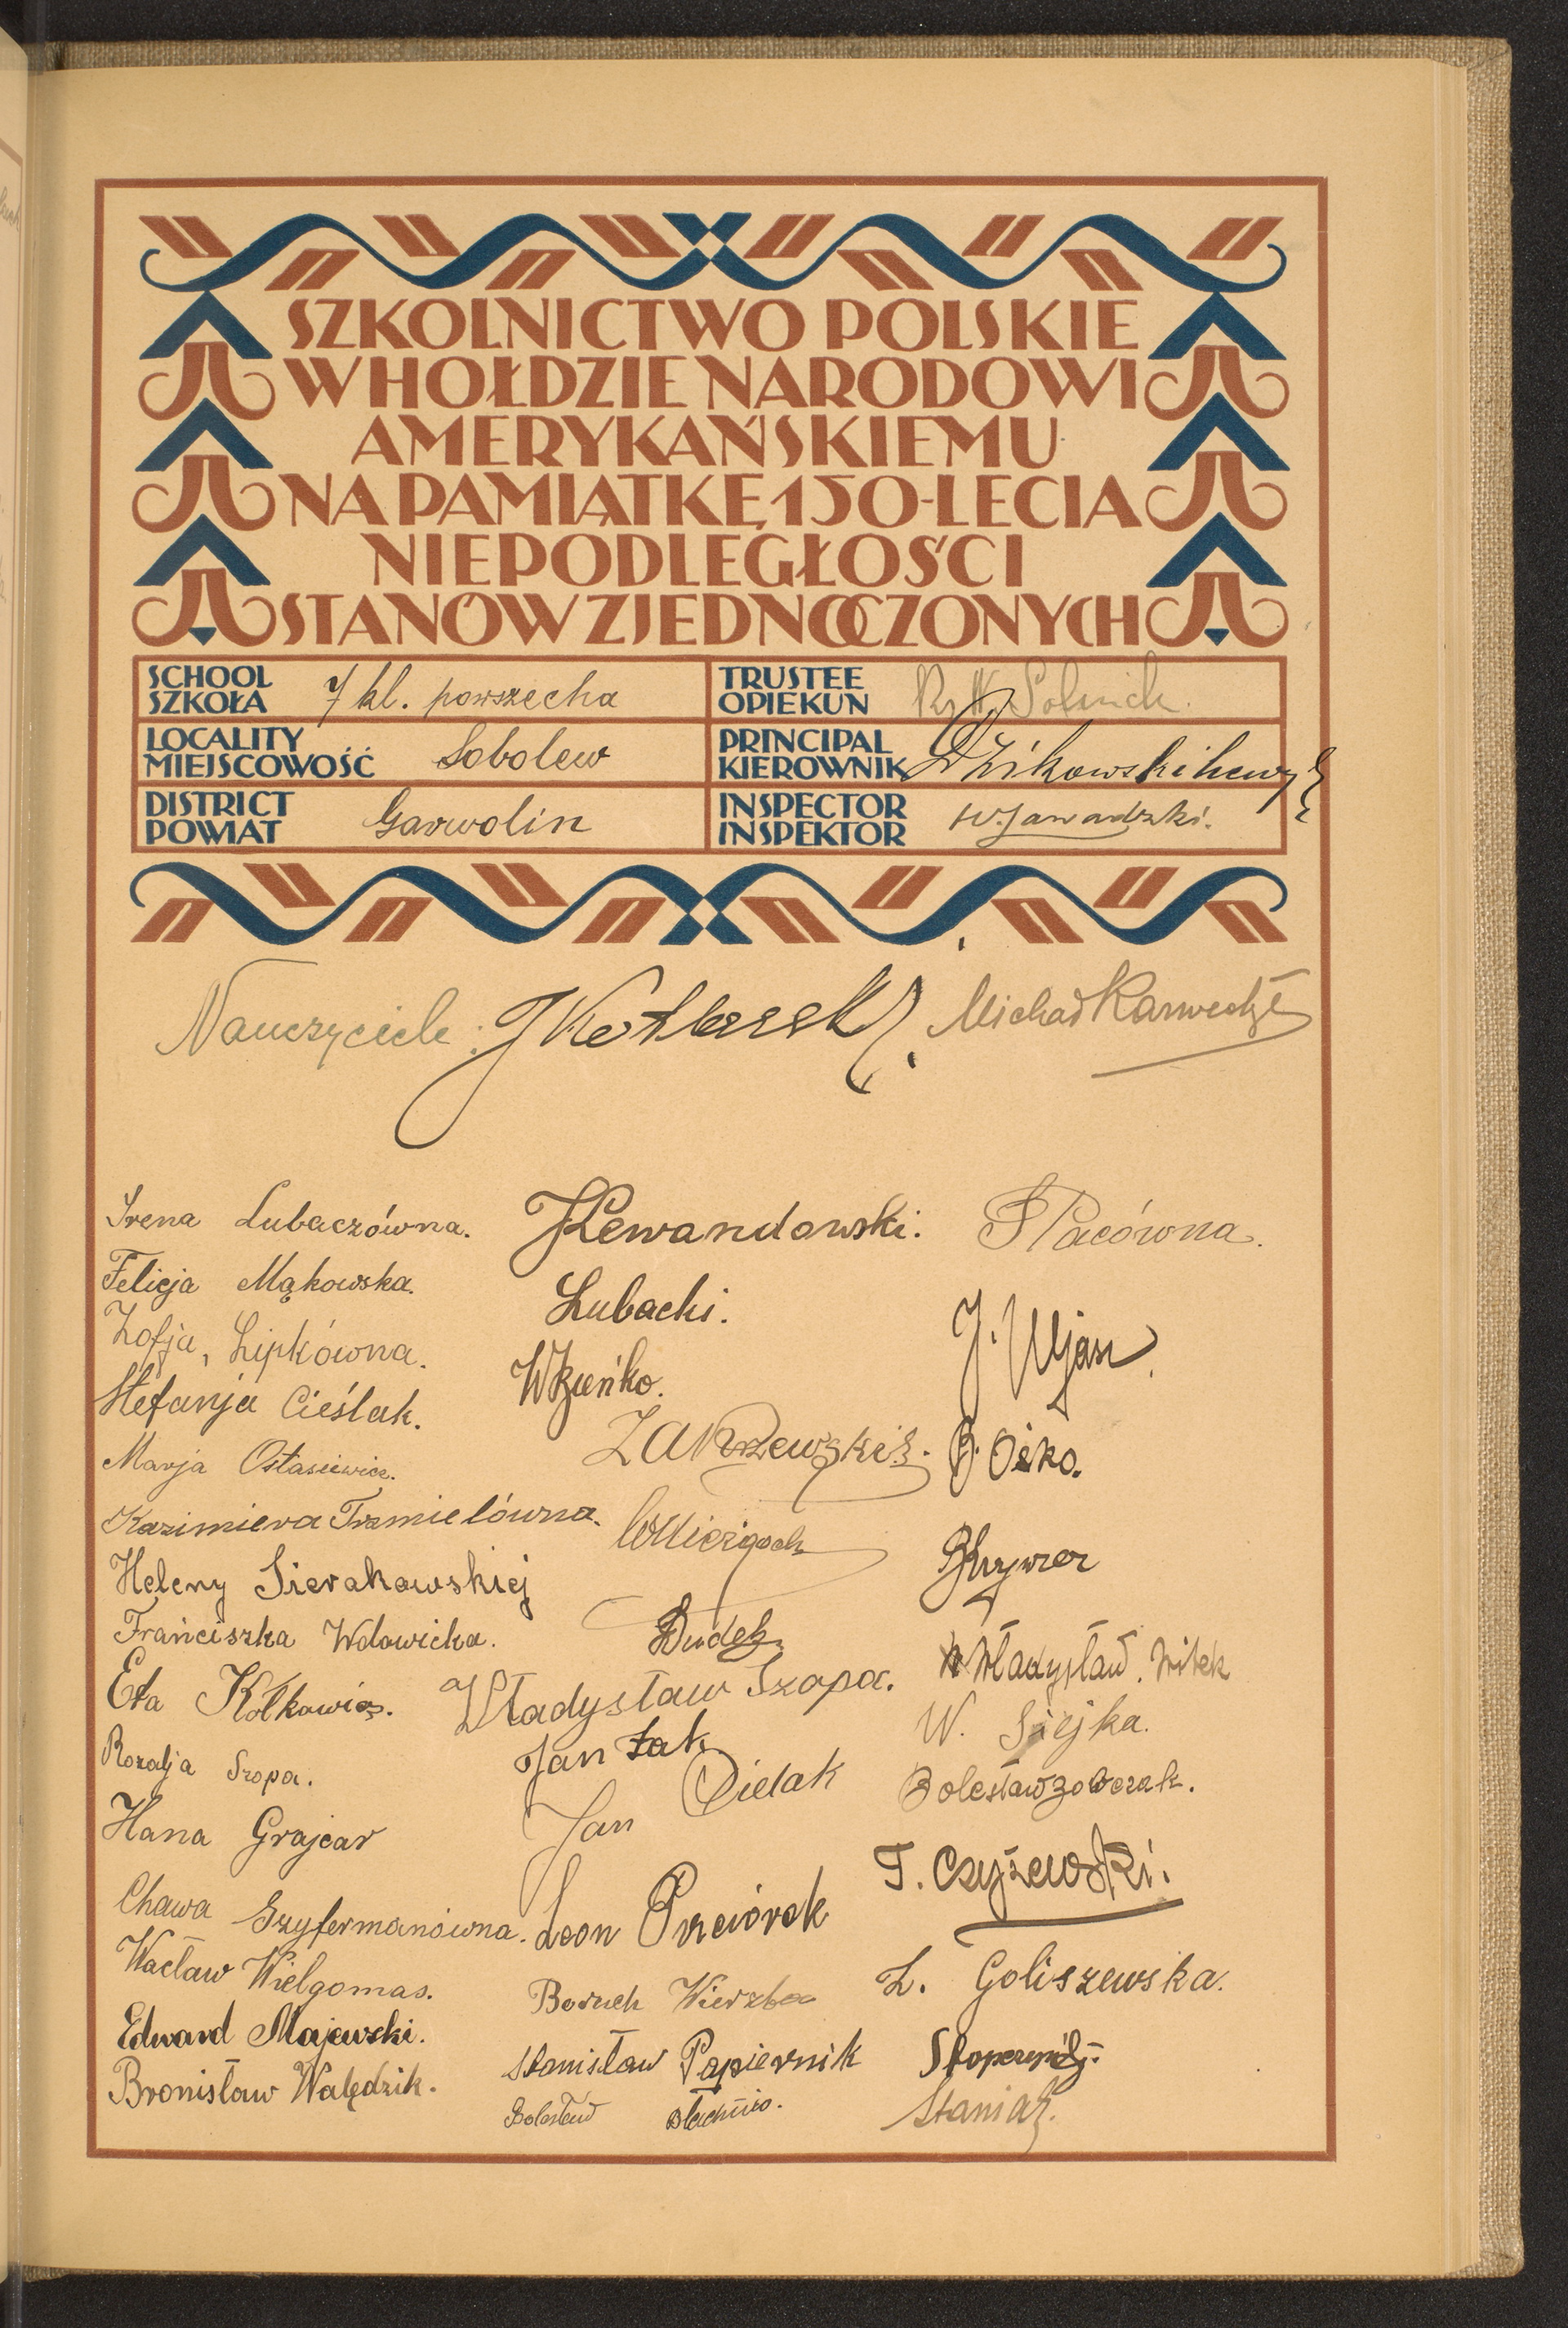 SZKOLNICTWO POLSKIE
W HOŁDZIE NARODOWI
AMERYKAŃSKIEMU
NA PAMIĄTKĘ 150-LECIA
NIEPODLEGŁOŚCI
STANÓW ZJEDNOCZONYCH
SCHOOL
SZKOŁA
7 kl. powszecha
TRUSTEE
OPIEKUN
LOCALITY
MIEJSCOWOŚĆ
Sobolew
PRINCIPAL
KIEROWNIK
DISTRICT
POWIAT
Garwolin
INSPECTOR
INSPEKTOR
W. Zawadzki.
Nauczyciele: Michał
Irena Lubaczówna.
Felicja Mąkowska.
Zofja, Lipkówna.
Stefanja Cieślak.
Marja Ostasiewicz.
Kazimiera Trzmielówna.
Heleny Sierakowskiej
Franciszka Wdowicka.
Eta Kółkowicz.
Rozalja Szopa.
Hana Grajcar
Chawa Szyfermanówna.
Wacław Wielgomas.
Edward Majewski.
Bronisław Walędzik.
Lewandowski.
Lubacki.
Zakrzewski.
Dudek
Władysław Szopa.
Jan Żak
Jan Dielak
Leon Przeiórek
Boruch Wierzba
Stanisław Papiernik
Bolesław
Pacówna.
J. Ujasz.
B. Ośko.
Władysław. Witek
W. Siejka.
Bolesław
T. Czyżewski.
L. Goliszewska.